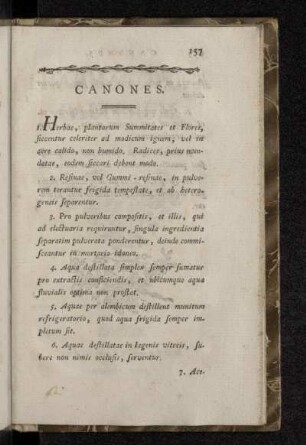 157
CANONES.
1. Herbae, plantarum Summitates et Flores,
siccentur celeriter ad modicum ignem, vel in
aere calido, non humido. Radices, prius mun-
datae, eodem siccari debent modo.
2. Resinae, vel Gummi-resinae, in pulve-
rem terantur frigida tempestate, et ab hetero-
geneis separentur.
3. Pro pulveribus compositis, et illis, qui
ad electuaria requiruntur, singula ingredientia
separatim pulverata ponderentur, deinde commi-
sceantur in mortario idoneo.
4. Aqua destillata simplex semper sumatur
pro extractis conficiendis, et ubicumque aqua
fluvialis optima non prostat.
5. Aquae per alembicum destillent munitum
refrigeratorio, quod aqua frigida semper im-
pletum sit.
6. Aquae destillatae in lagenis vitreis, su-
bere non nimis occlusis, serventur.
7. Ace-